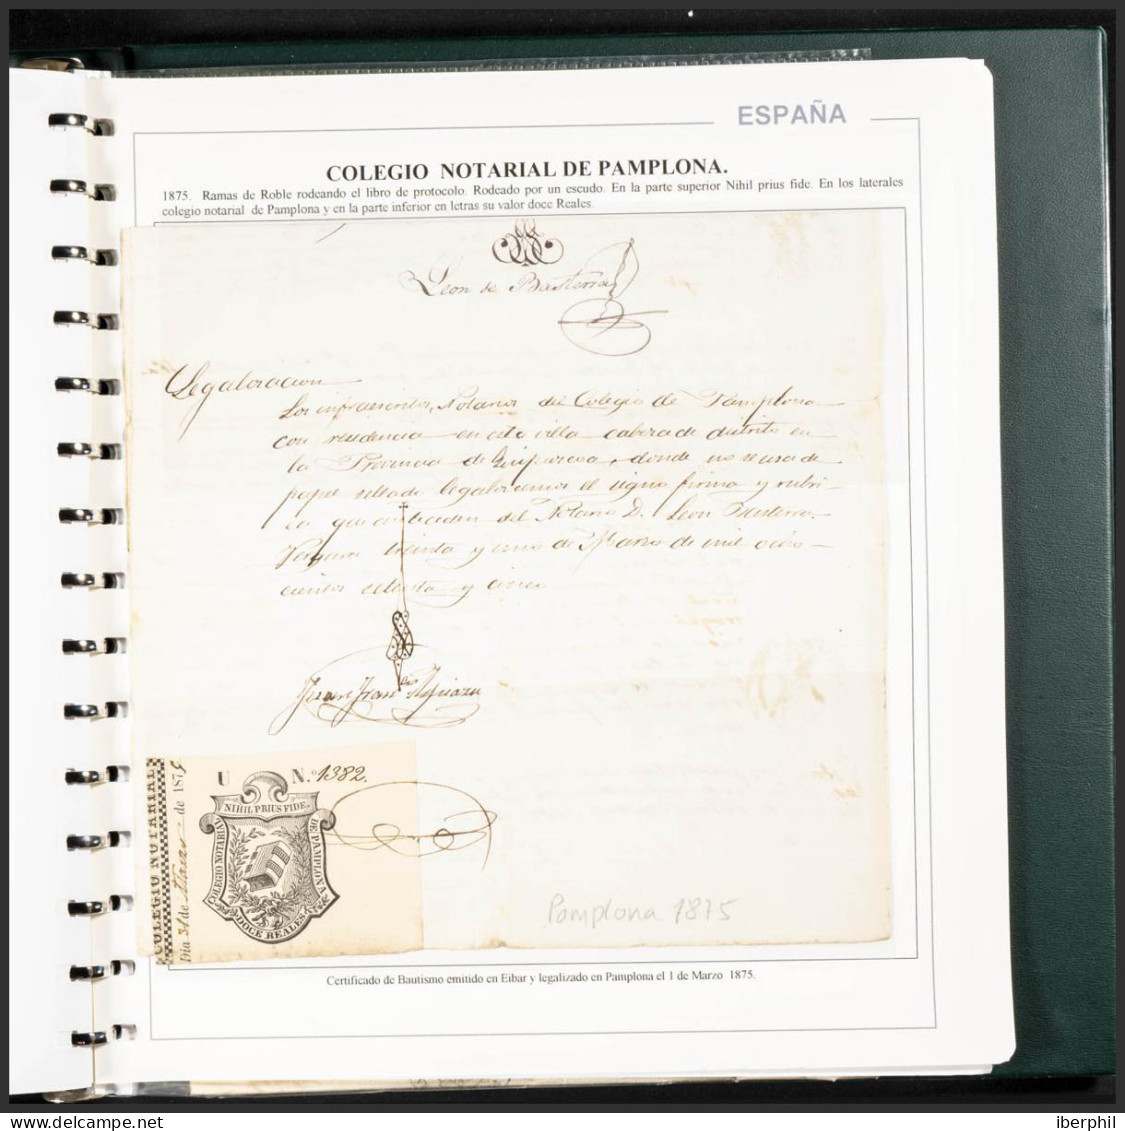 ESPAÑA
COLEGIO NOTARIAL DE PAMPLONA.
1875. Ramas de Roble rodeando el libro de protocolo. Rodeado por un escudo. En la parte superior Nihil prius fide. En los laterales
colegio notarial de Pamplona y en la parte inferior en letras su valor doce Reales.
Leon de Basterra
Legalizacion
Los infraescritos, Notarios del Colegio de Pamplona
con residencia en esta villa cabeza de distrito en
la Provincia de Guipuzcoa, donde no se usa de
papel sellado legalizamos el signo firma y rubri-
ca que anteceden del Notario D. Leon Basterra.
Vergara treinta y uno de Marzo de mil ocho-
cientos setenta y cinco
Juan Franco
U N.º 1382.
NIHIL PRIUS FIDE.
COLEGIO NOTARIAL
DE PAMPLONA
DOCE REALES.
COLEGIO NOTARIAL
Dia 31 de Marzo de 1875
Pamplona 1875
Certificado de Bautismo emitido en Eibar y legalizado en Pamplona el 1 de Marzo 1875.
iberphil